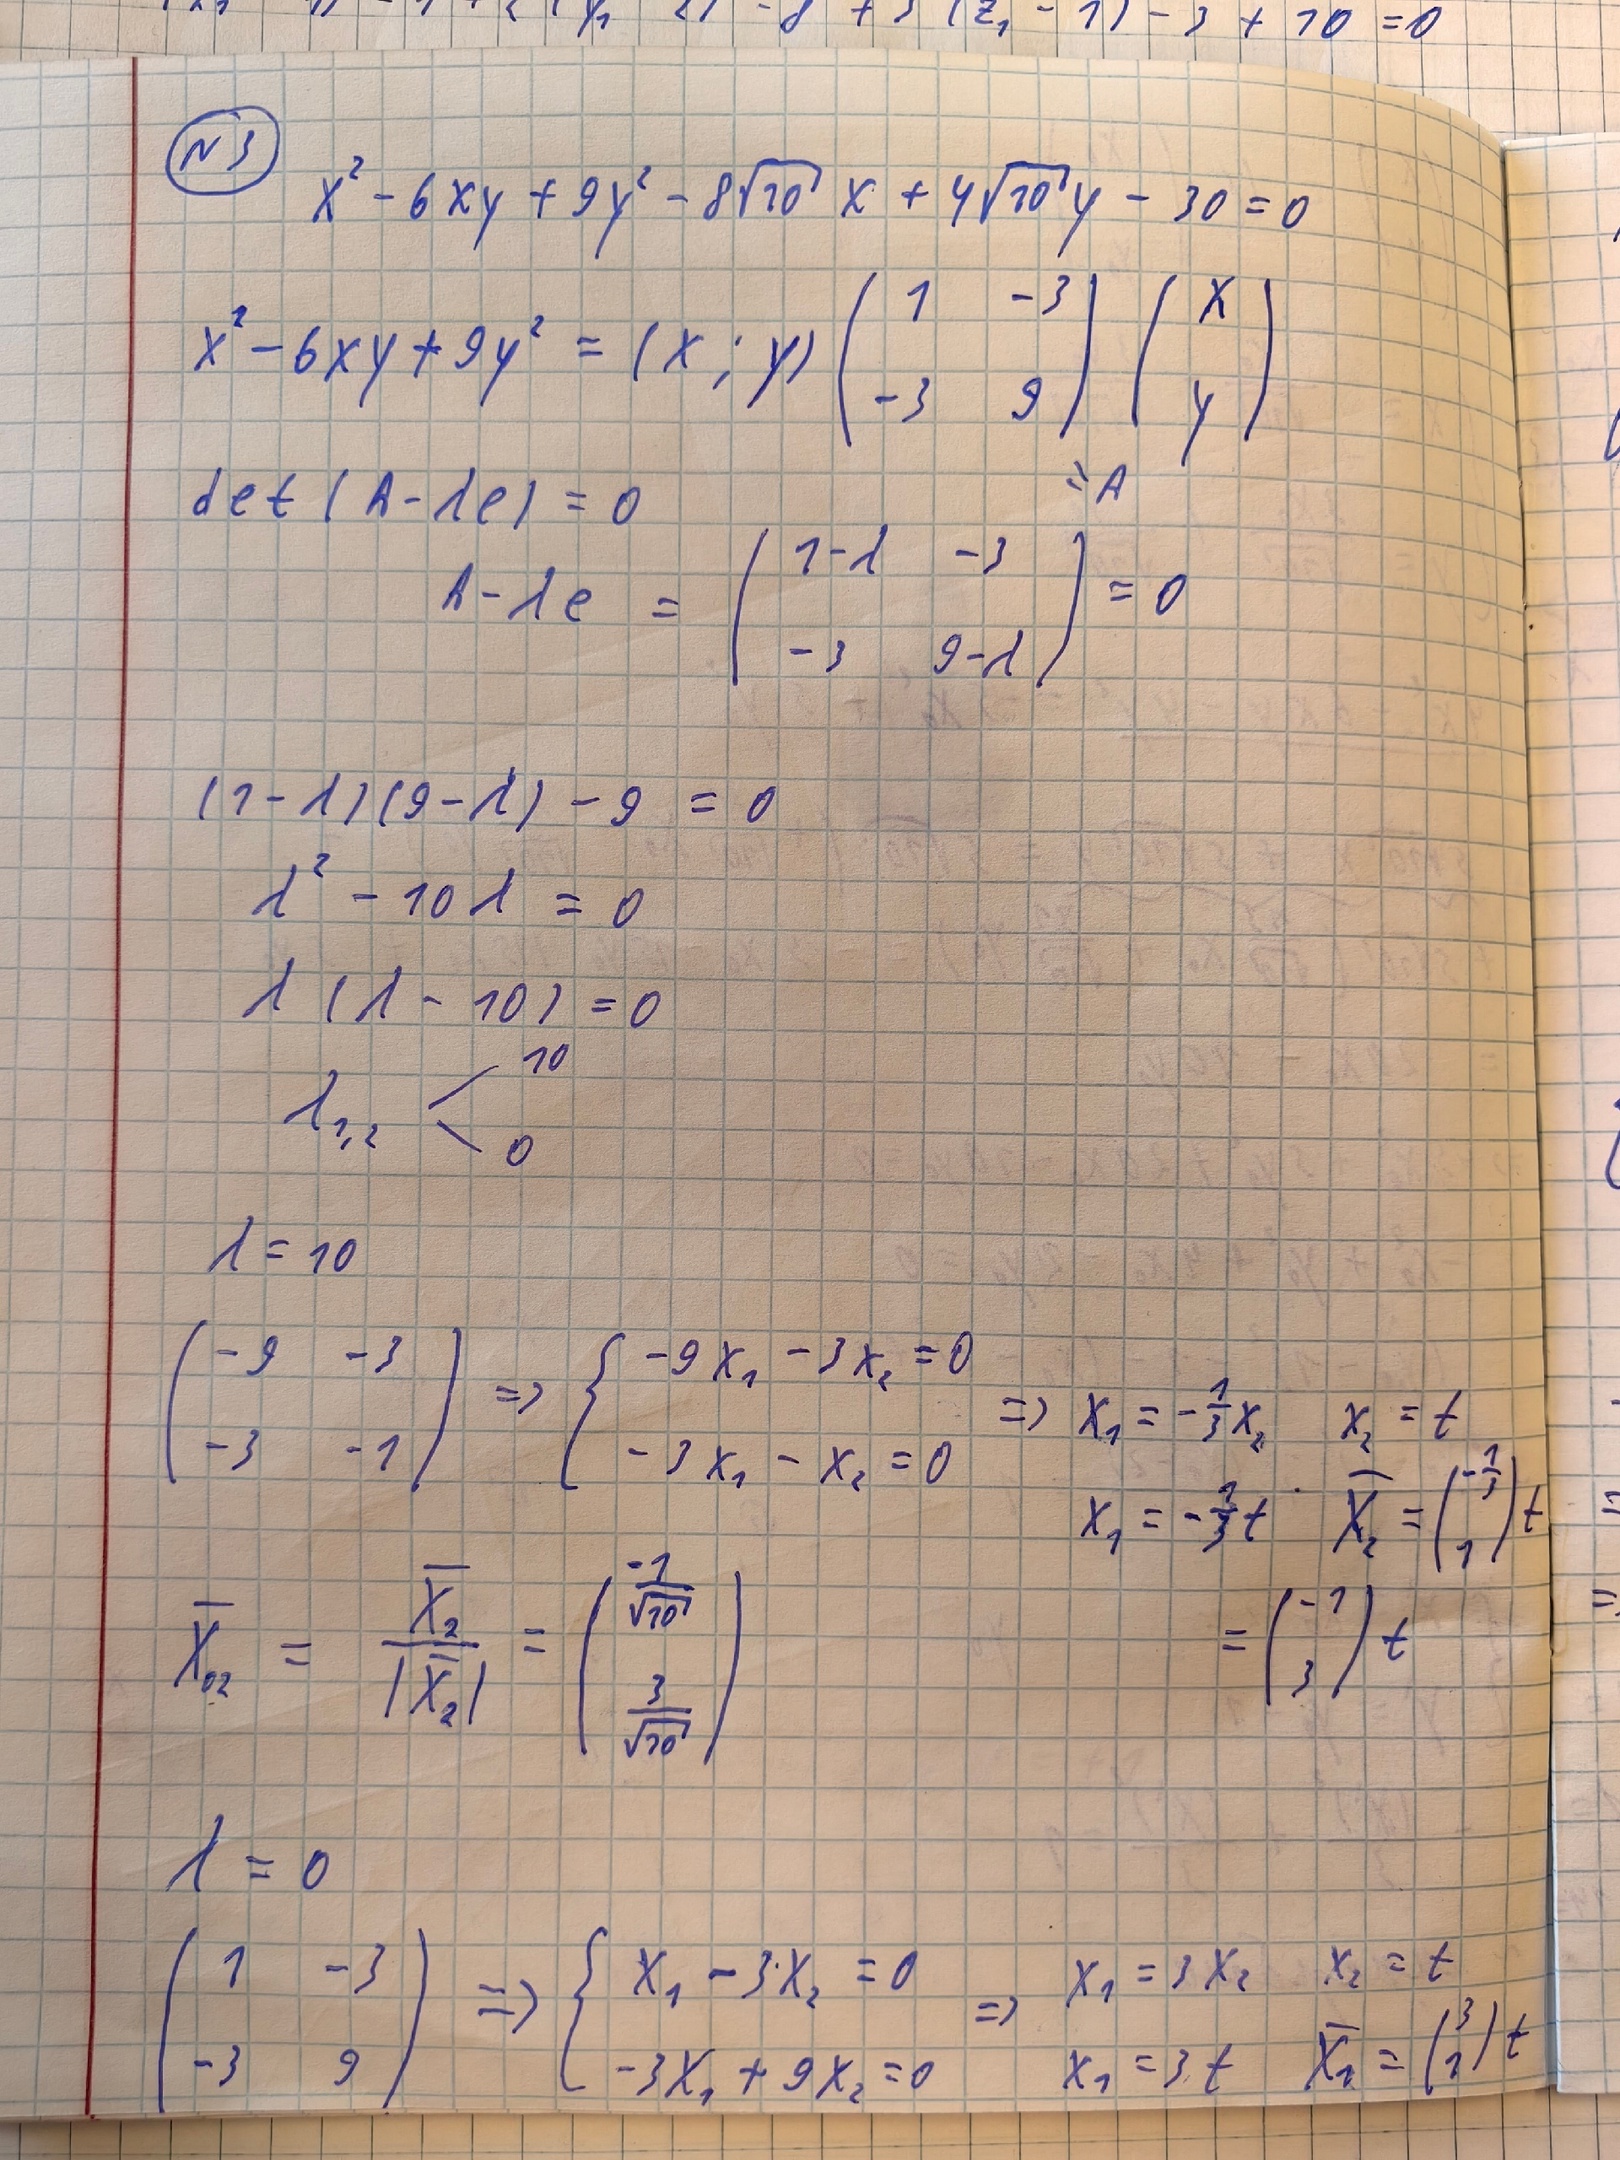 - 8 + 3 (z₁ - 1) - 3 + 10 = 0
N3
x² - 6xy + 9y² - 8√10 x + 4√10 y - 30 = 0
x² - 6xy + 9y² = (x ; y) ( 1 -3 ; -3 9 ) ( x ; y )
= A
det (A - λe) = 0
A - λe = ( 1-λ -3 ; -3 9-λ ) = 0
(1 - λ)(9 - λ) - 9 = 0
λ² - 10λ = 0
λ (λ - 10) = 0
λ₁,₂ < 10 0
λ = 10
( -9 -3 ; -3 -1 ) => { -9x₁ - 3x₂ = 0 ; -3x₁ - x₂ = 0 => x₁ = -1/3 x₂ x₂ = t
x₁ = -1/3 t X̄₂ = ( -1/3 ; 1 ) t
= ( -1 ; 3 ) t
X̄₀₂ = X̄₂ / |X̄₂| = ( -1/√10 ; 3/√10 )
λ = 0
( 1 -3 ; -3 9 ) => { x₁ - 3·x₂ = 0 ; -3x₁ + 9x₂ = 0 => x₁ = 3x₂ x₂ = t
x₁ = 3t X̄₁ = ( 3 ; 1 ) t